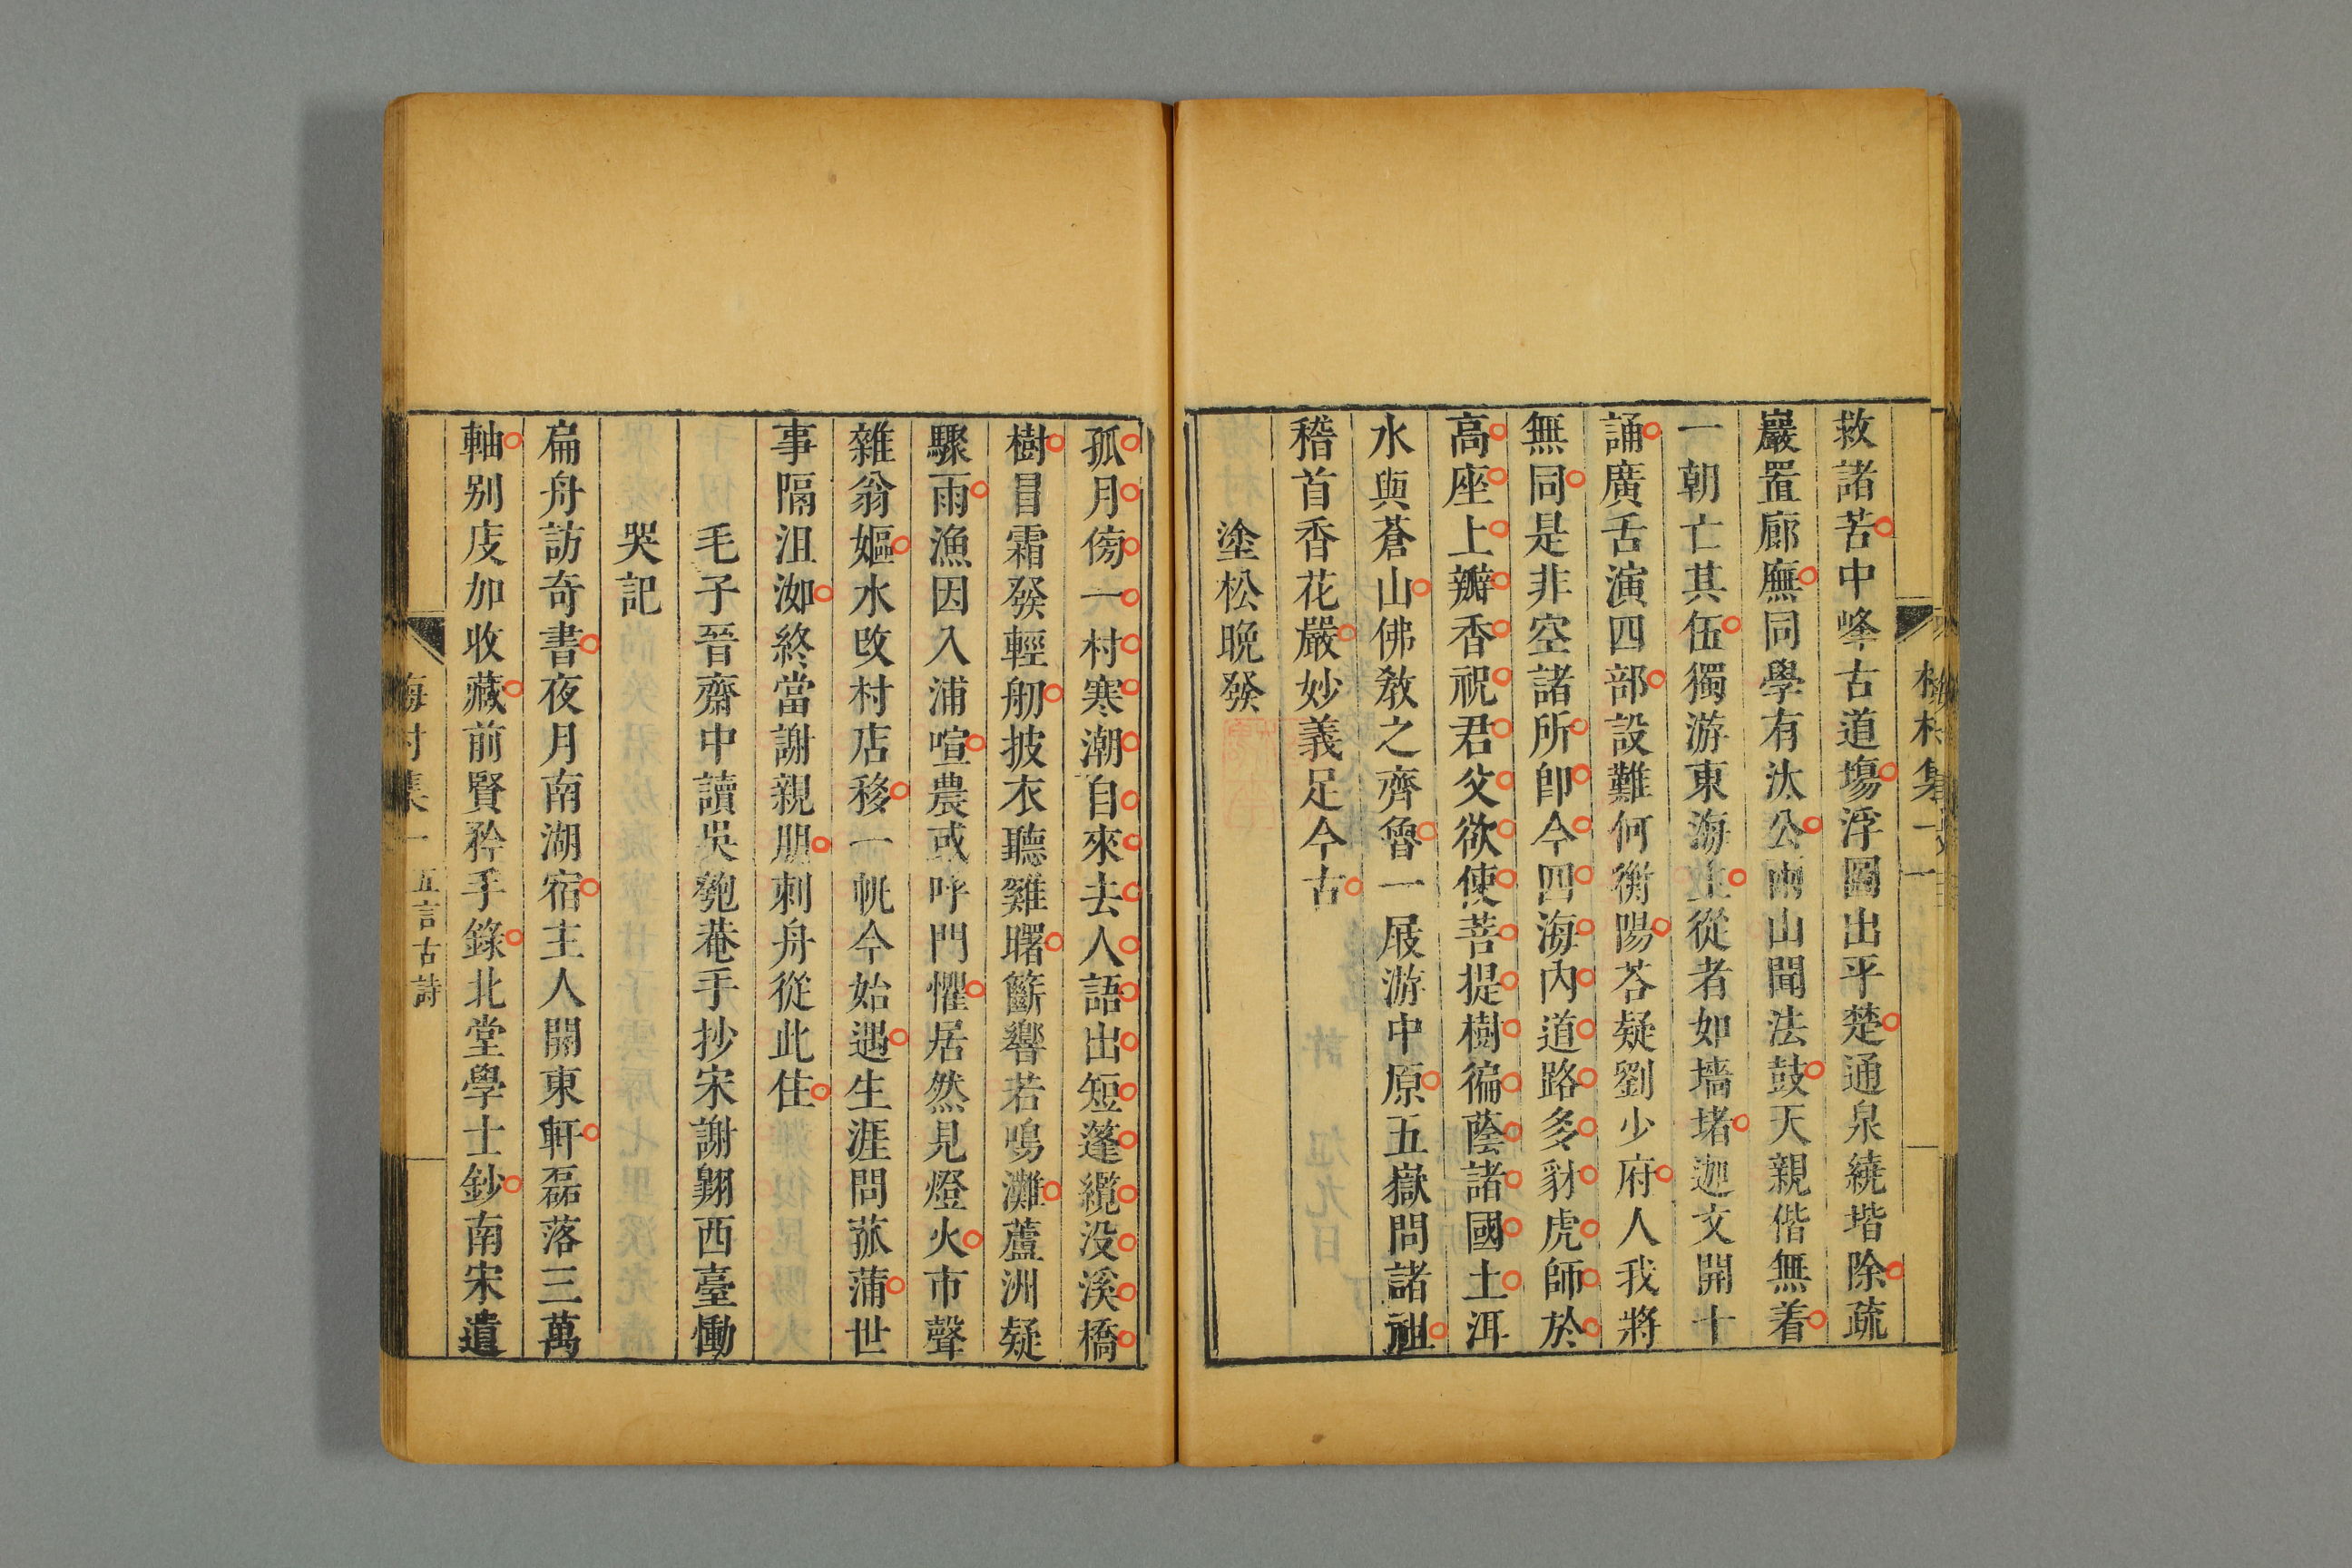 救諸苦中峰古道塲浮圖出平楚通泉繞堦除疏
巖置廊廡同學有汰公兩山聞法鼓天親偕無着
一朝亡其伍獨游東海上從者如墻堵迦文開十
誦廣舌演四部設難何衡陽荅疑劉少府人我將
無同是非空諸所卽今四海內道路多豺虎師於
高座上瓣香祝君父欲使菩提樹徧蔭諸國土洱
水與蒼山佛敎之齊魯一屐游中原五嶽問諸祖
稽首香花嚴妙義足今古
塗松晩發
孤月傍一村寒潮自來去人語出短蓬纜没溪橋
樹冒霜發輕舠披衣聽雞曙籪響若鳴灘蘆洲疑
驟雨漁因入浦喧農或呼門懼居然見燈火市聲
雜翁嫗水改村店移一帆今始遇生涯問菰蒲世
事隔沮洳終當謝親朋刺舟從此住
毛子晉齋中讀吳匏菴手抄宋謝翺西臺慟
哭記
扁舟訪奇書夜月南湖宿主人開東軒磊落三萬
軸别庋加收藏前賢矜手錄北堂學士鈔南宋遺
梅村集一 五言古詩